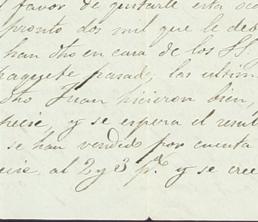 favor de gustarle esta
pronto dos mil que le de
han dho en casa de los SS.
pasado, las ultim
dho Juan hicieron bien,
, y se espera el resul
se han vendido por cuenta
al 2 y 3 p.% y se cree